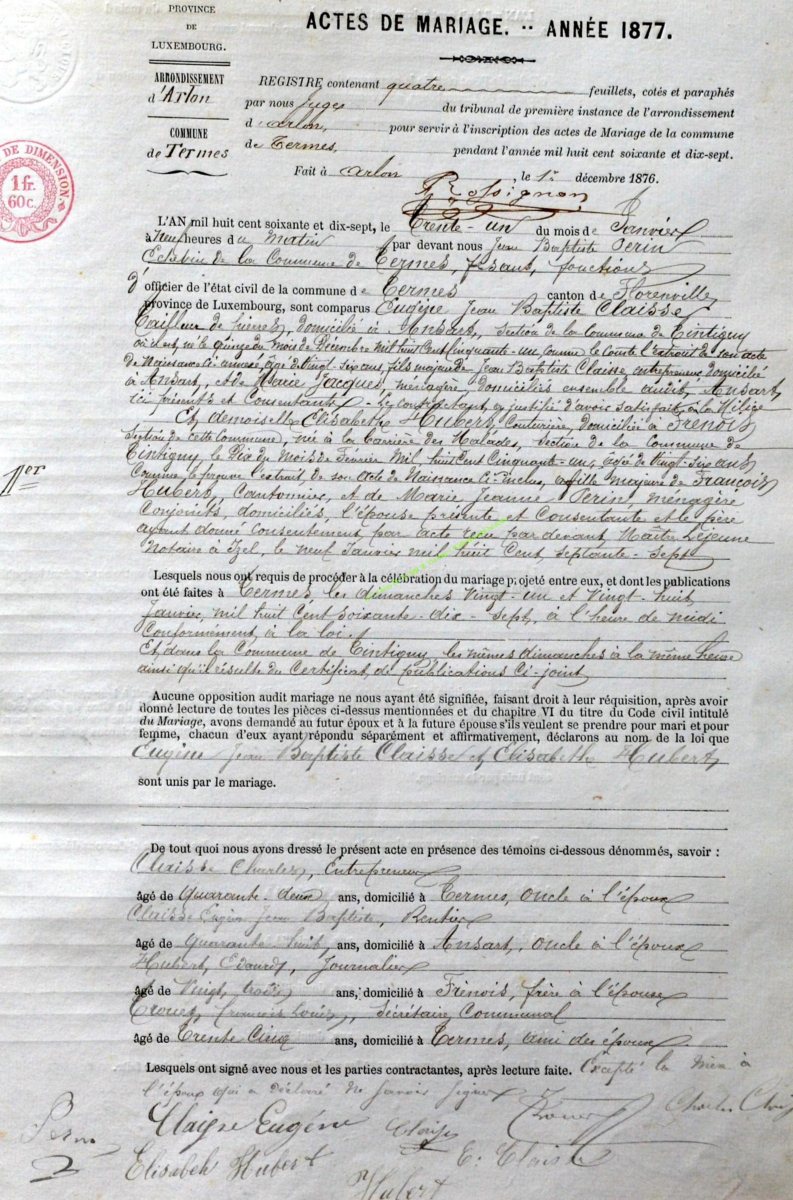 PROVINCE
DE
LUXEMBOURG.
ARRONDISSEMENT
d'Arlon
COMMUNE
de Termes
ACTES DE MARIAGE. -- ANNÉE 1877.
REGISTRE contenant quatre feuillets, cotés et paraphés
par nous juge du tribunal de première instance de l'arrondissement
d'arlon, pour servir à l'inscription des actes de Mariage de la commune
de Termes, pendant l'année mil huit cent soixante et dix-sept.
Fait à arlon, le 1er décembre 1876.
Rossignon
DE DIMENSION
1 fr.
60 c.
L'AN mil huit cent soixante et dix-sept, le Trente-un du mois de Janvier
à Neuf heures du Matin par devant nous Jean Baptiste Perin
Echevin de la Commune de Termes, fesant, fonctions
d'officier de l'état civil de la commune de Termes canton de Florenville
province de Luxembourg, sont comparus Eugène Jean Baptiste Claisse
Tailleur de pierres, domicilié à Ansart, section de la Commune de Tintigny
où il est né le quinze du mois de Décembre mil huit Cent Cinquante-un comme le Conste l'extrait de son acte
de Naissance Ci-annexé, âgé de Vingt-six ans, fils majeur de Jean Baptiste Claisse, entrepreneur domicilié
à Ansart, et de Marie Jacques, ménagère, domiciliés ensemble audit Ansart
ici présents et Consentants. Le contractant, a justifié d'avoir satisfait, à la Milice
Et demoiselle Elisabethe Hubert, Couturière, domiciliée à Frenois
Section de cette commune, née à la barrière des Malades, section de la Commune de
Tintigny le Dix du mois de Février Mil huit Cent Cinquante-un, âgée de Vingt-six ans
Comme le prouve l'extrait, de son acte de Naissance Ci-inclus, fille majeure de François
Hubert, Cantonnier, et de Marie Jeanne Perin ménagère
Conjoints, domiciliés, l'épouse présente et Consentante et le père
ayant donné consentement, par acte reçu par devant, Maître Lejeune
Notaire à Izel, le neuf Janvier mil huit Cent, Septante-Sept
1er
Lesquels nous ont requis de procéder à la célébration du mariage projeté entre eux, et dont les publications
ont été faites à Termes les dimanches Vingt-un et Vingt-huit
Janvier, mil huit Cent soixante-dix-sept, à l'heure de midi
Conformément, à la loi
Et dans la Commune de Tintigny les mêmes dimanches à la même heure
ainsi qu'il résulte du Certificat, de publications Ci-joint
Aucune opposition audit mariage ne nous ayant été signifiée, faisant droit à leur réquisition, après avoir
donné lecture de toutes les pièces ci-dessus mentionnées et du chapitre VI du titre du Code civil intitulé
du Mariage, avons demandé au futur époux et à la future épouse s'ils veulent se prendre pour mari et pour
femme, chacun d'eux ayant répondu séparément et affirmativement, déclarons au nom de la loi que
Eugène Jean Baptiste Claisse et Elisabethe Hubert
sont unis par le mariage.
De tout quoi nous avons dressé le présent acte en présence des témoins ci-dessous dénommés, savoir :
Claisse Charles, Entrepreneur
âgé de Quarante-deux ans, domicilié à Termes, oncle à l'époux
Claisse Eugène Jean Baptiste, Rentier
âgé de Quarante huit ans, domicilié à Ansart, oncle à l'époux
Hubert, Edouard, Journalier
âgé de Vingt, trois ans, domicilié à Frénois, frère à l'épouse
François Louis, Sécrétaire, Communal
âgé de Trente Cinq ans, domicilié à Termes, ami des époux
Lesquels ont signé avec nous et les parties contractantes, après lecture faite. Excepté la mère à
l'époux qui a déclaré ne savoir signer
Claisse Eugéne
Charles
Perin
Elisabeh Hubert
E. Claisse
Hubert